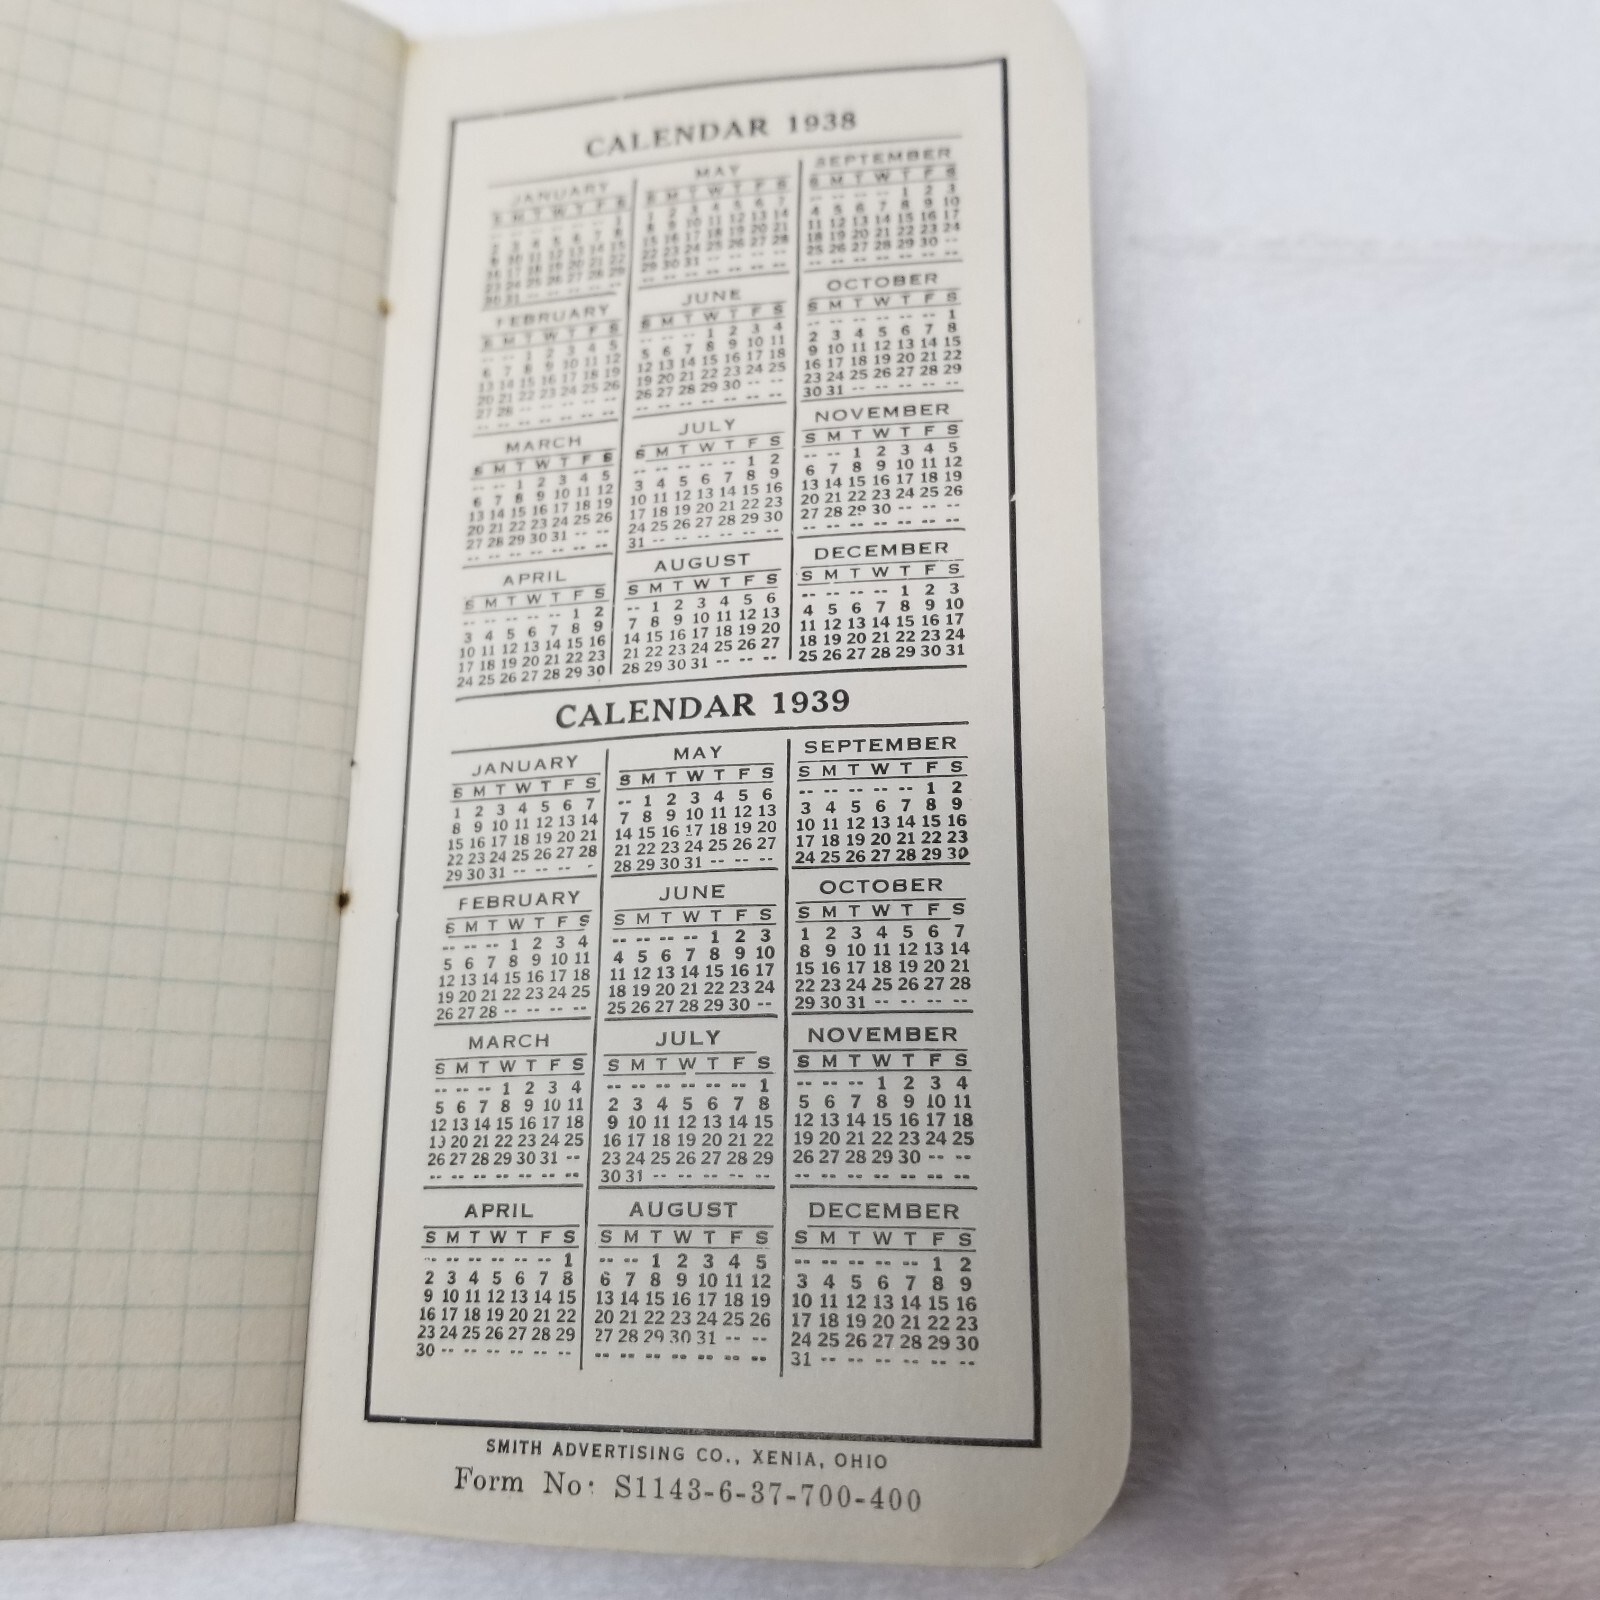 CALENDAR 1938
JANUARY
S M T W T F S
-- -- -- -- -- -- 1
2 3 4 5 6 7 8
9 10 11 12 13 14 15
16 17 18 19 20 21 22
23 24 25 26 27 28 29
30 31 -- -- -- -- --
FEBRUARY
S M T W T F S
-- -- 1 2 3 4 5
6 7 8 9 10 11 12
13 14 15 16 17 18 19
20 21 22 23 24 25 26
27 28 -- -- -- -- --
-- -- -- -- -- -- --
MARCH
S M T W T F S
-- -- 1 2 3 4 5
6 7 8 9 10 11 12
13 14 15 16 17 18 19
20 21 22 23 24 25 26
27 28 29 30 31 -- --
-- -- -- -- -- -- --
APRIL
S M T W T F S
-- -- -- -- -- 1 2
3 4 5 6 7 8 9
10 11 12 13 14 15 16
17 18 19 20 21 22 23
24 25 26 27 28 29 30
MAY
S M T W T F S
1 2 3 4 5 6 7
8 9 10 11 12 13 14
15 16 17 18 19 20 21
22 23 24 25 26 27 28
29 30 31 -- -- -- --
-- -- -- -- -- -- --
JUNE
S M T W T F S
-- -- -- 1 2 3 4
5 6 7 8 9 10 11
12 13 14 15 16 17 18
19 20 21 22 23 24 25
26 27 28 29 30 -- --
-- -- -- -- -- -- --
JULY
S M T W T F S
-- -- -- -- -- 1 2
3 4 5 6 7 8 9
10 11 12 13 14 15 16
17 18 19 20 21 22 23
24 25 26 27 28 29 30
31 -- -- -- -- -- --
AUGUST
S M T W T F S
-- 1 2 3 4 5 6
7 8 9 10 11 12 13
14 15 16 17 18 19 20
21 22 23 24 25 26 27
28 29 30 31 -- -- --
SEPTEMBER
S M T W T F S
-- -- -- -- 1 2 3
4 5 6 7 8 9 10
11 12 13 14 15 16 17
18 19 20 21 22 23 24
25 26 27 28 29 30 --
-- -- -- -- -- -- --
OCTOBER
S M T W T F S
-- -- -- -- -- -- 1
2 3 4 5 6 7 8
9 10 11 12 13 14 15
16 17 18 19 20 21 22
23 24 25 26 27 28 29
30 31 -- -- -- -- --
NOVEMBER
S M T W T F S
-- -- 1 2 3 4 5
6 7 8 9 10 11 12
13 14 15 16 17 18 19
20 21 22 23 24 25 26
27 28 29 30 -- -- --
-- -- -- -- -- -- --
DECEMBER
S M T W T F S
-- -- -- -- 1 2 3
4 5 6 7 8 9 10
11 12 13 14 15 16 17
18 19 20 21 22 23 24
25 26 27 28 29 30 31
CALENDAR 1939
JANUARY
S M T W T F S
1 2 3 4 5 6 7
8 9 10 11 12 13 14
15 16 17 18 19 20 21
22 23 24 25 26 27 28
29 30 31 -- -- -- --
FEBRUARY
S M T W T F S
-- -- -- 1 2 3 4
5 6 7 8 9 10 11
12 13 14 15 16 17 18
19 20 21 22 23 24 25
26 27 28 -- -- -- --
MARCH
S M T W T F S
-- -- -- 1 2 3 4
5 6 7 8 9 10 11
12 13 14 15 16 17 18
19 20 21 22 23 24 25
26 27 28 29 30 31 --
-- -- -- -- -- -- --
APRIL
S M T W T F S
-- -- -- -- -- -- 1
2 3 4 5 6 7 8
9 10 11 12 13 14 15
16 17 18 19 20 21 22
23 24 25 26 27 28 29
30 -- -- -- -- -- --
MAY
S M T W T F S
-- 1 2 3 4 5 6
7 8 9 10 11 12 13
14 15 16 17 18 19 20
21 22 23 24 25 26 27
28 29 30 31 -- -- --
JUNE
S M T W T F S
-- -- -- -- 1 2 3
4 5 6 7 8 9 10
11 12 13 14 15 16 17
18 19 20 21 22 23 24
25 26 27 28 29 30 --
JULY
S M T W T F S
-- -- -- -- -- -- 1
2 3 4 5 6 7 8
9 10 11 12 13 14 15
16 17 18 19 20 21 22
23 24 25 26 27 28 29
30 31 -- -- -- -- --
AUGUST
S M T W T F S
-- -- 1 2 3 4 5
6 7 8 9 10 11 12
13 14 15 16 17 18 19
20 21 22 23 24 25 26
27 28 29 30 31 -- --
-- -- -- -- -- -- --
SEPTEMBER
S M T W T F S
-- -- -- -- -- 1 2
3 4 5 6 7 8 9
10 11 12 13 14 15 16
17 18 19 20 21 22 23
24 25 26 27 28 29 30
OCTOBER
S M T W T F S
1 2 3 4 5 6 7
8 9 10 11 12 13 14
15 16 17 18 19 20 21
22 23 24 25 26 27 28
29 30 31 -- -- -- --
NOVEMBER
S M T W T F S
-- -- -- 1 2 3 4
5 6 7 8 9 10 11
12 13 14 15 16 17 18
19 20 21 22 23 24 25
26 27 28 29 30 -- --
-- -- -- -- -- -- --
DECEMBER
S M T W T F S
-- -- -- -- -- 1 2
3 4 5 6 7 8 9
10 11 12 13 14 15 16
17 18 19 20 21 22 23
24 25 26 27 28 29 30
31 -- -- -- -- -- --
SMITH ADVERTISING CO., XENIA, OHIO
Form No: S1143-6-37-700-400